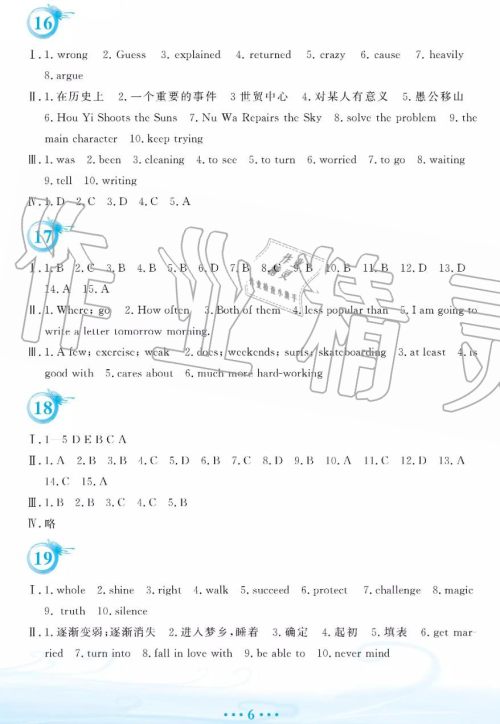 16
Ⅰ. 1. wrong 2. Guess 3. explained 4. returned 5. crazy 6. cause 7. heavily
8. argue
Ⅱ. 1. 在历史上 2. 一个重要的事件 3 世贸中心 4. 对某人有意义 5. 愚公移山
6. Hou Yi Shoots the Suns 7. Nu Wa Repairs the Sky 8. solve the problem 9. the
main character 10. keep trying
Ⅲ. 1. was 2. been 3. cleaning 4. to see 5. to turn 6. worried 7. to go 8. waiting
9. tell 10. writing
Ⅳ. 1. D 2. C 3. D 4. C 5. A
17
Ⅰ. 1. B 2. C 3. B 4. B 5. B 6. D 7. B 8. C 9. B 10. B 11. B 12. D 13. D
14. A 15. A
Ⅱ. 1. Where; go 2. How often 3. Both of them 4. less popular than 5. I am going to
write a letter tomorrow morning.
Ⅲ. 1. A few; exercise; weak 2. does; weekends; surfs; skateboarding 3. at least 4. is
good with 5. cares about 6. much more hard-working
18
Ⅰ. 1—5 D E B C A
Ⅱ. 1. A 2. B 3. B 4. C 5. D 6. B 7. D 8. B 9. D 10. A 11. C 12. D 13. A
14. C 15. A
Ⅲ. 1. B 2. B 3. C 4. C 5. B
Ⅳ. 略
19
Ⅰ. 1. whole 2. shine 3. right 4. walk 5. succeed 6. protect 7. challenge 8. magic
9. truth 10. silence
Ⅱ. 1. 逐渐变弱;逐渐消失 2. 进入梦乡,睡着 3. 确定 4. 起初 5. 填表 6. get mar-
ried 7. turn into 8. fall in love with 9. be able to 10. never mind
••• 6 •••
作业精灵